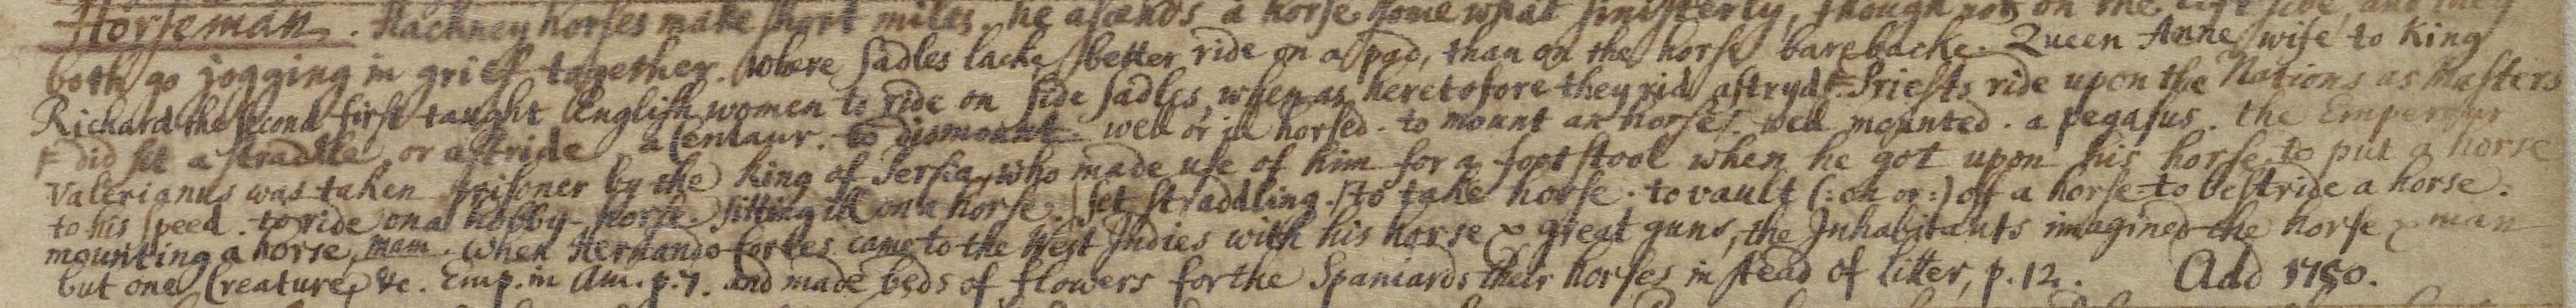 Horseman. Hackney horses make short miles. he ascends a horse somewhat sinisterly, though not on the left side, and they
both go jogging in grief together. where sadles lacke, better ride on a pad, than on the horse barebacke. Queen Anne wife to King
Richard the second first taught English women to ride on side sadles, when as heretofore they rid astryde. Priests ride upon the Nations as Masters
did set a straddle, or astride, a Centaur. to dismount. well or ill horsed. to mount an horse. well mounted. a pegasus. the Emperour
Valerianus was taken prisoner by the King of Persia, who made use of him for a footstool when he got upon his horse. to put a horse
to his speed. to ride on a hobby-horse. sitting ill on a horse. set straddling. to take horse. to vault (: on or :) off a horse to bestride a horse.
mounting a horse, mam. when Hernando Cortes came to the West Indies with his horse & great guns, the Inhabitants imagined the horse & man
but one Creature, &c. Emp. in Am. p. 7. and made beds of flowers for the Spaniards their horses in stead of litter, p. 12. Add 1750.